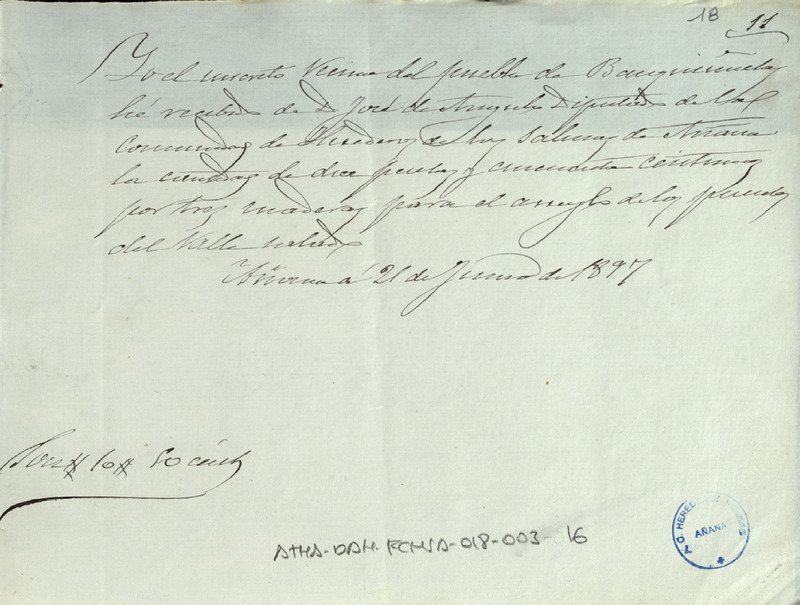 18 11
Yo el inscrito Vecino del pueblo de
hé recibido de D José de Angulo Diputado de la
comunidad de Herederos de las Salinas de Añana
la cantidad de diez pesetas y cincuenta céntimos
por tres maderas para el arreglo de los puentes
del Valle salado
Añana á 21 de Junio de 1897
Son # 10 # 50 cént
ATHA-DAH-FCHSA-018-003-16
AÑANA